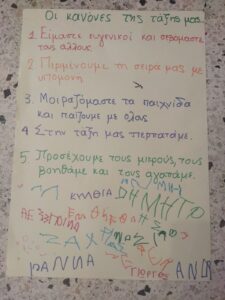 Οι κανόνες της τάξης μας...
1. Είμαστε ευγενικοί και σεβόμαστε
τους άλλους.
2. Περιμένουμε τη σειρά μας με
υπομονή
3. Μοιραζόμαστε τα παιχνίδια
και παίζουμε με όλους
4 Στην τάξη μας περπατάμε.
5. Προσέχουμε τους μικρούς, τους
βοηθάμε και τους αγαπάμε.
ΔΗΜΗΤΡ
ΖΑΧ
ΓΙΩΡΓΟΣ